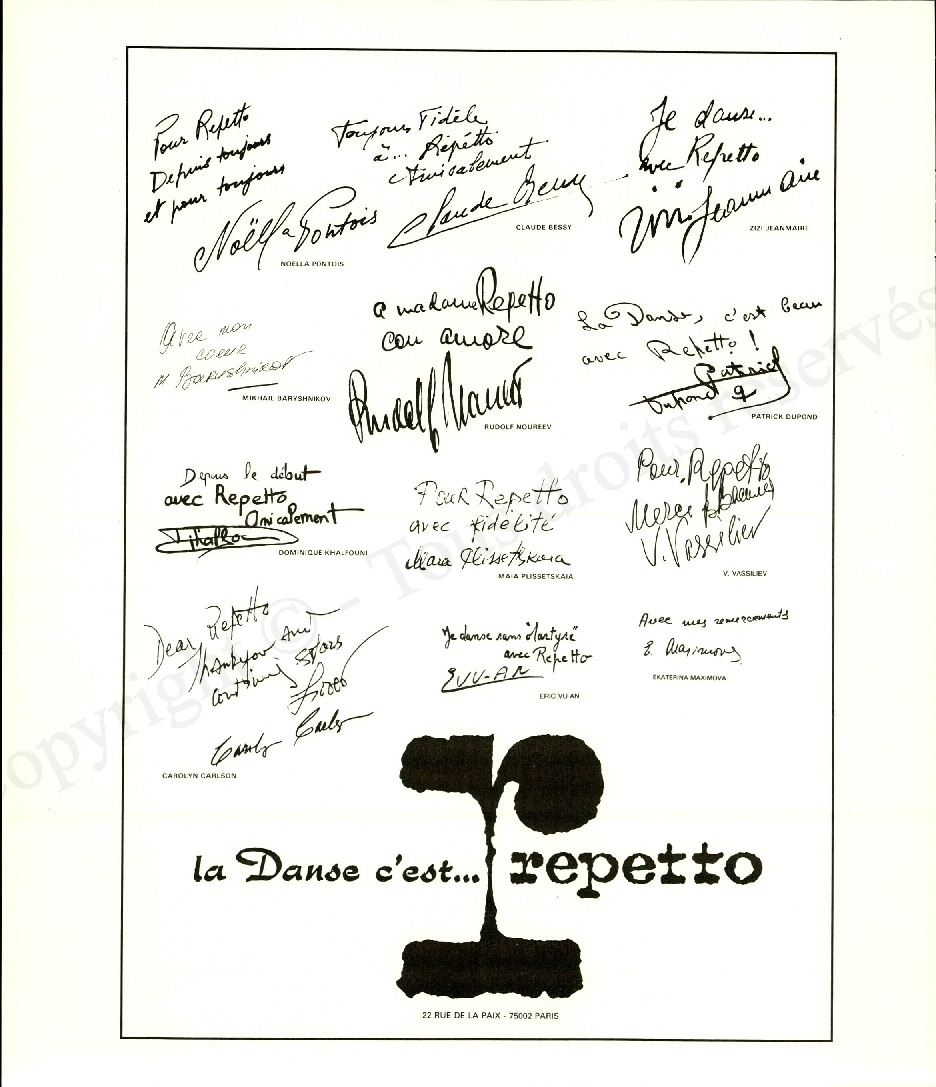 Pour Repetto
Depuis toujours
et pour toujours
Noëlla Pontois
NOELLA PONTOIS
Toujours Fidèle
à... Répétto
Amicalement
Claude Bessy
CLAUDE BESSY
Je danse...
avec Repetto
Zizi Jeanmaire
ZIZI JEANMAIRE
Avec mon
coeur
M Baryshnikov
MIKHAIL BARYSHNIKOV
a madame Repetto
con amore
Rudolf Noureev
RUDOLF NOUREEV
La Danse, c'est beau
avec Repetto !
Patrick
Dupond
PATRICK DUPOND
Depuis le début
avec Repetto
Amicalement
Khalfouni
DOMINIQUE KHALFOUNI
Pour Repetto
avec fidélité
Maia Plissetskaia
MAIA PLISSETSKAIA
Pour Reppetto
Merci
V. Vassiliev
V. VASSILIEV
Dear Repetto
thankyou and
stars
Carolyn Carlson
CAROLYN CARLSON
Je danse sans "martyre"
avec Repetto
E VU-AN
ERIC VU AN
Avec mes remerciements
E. Maximova
EKATERINA MAXIMOVA
r
la Danse c'est... repetto
22 RUE DE LA PAIX - 75002 PARIS
Copyright © – Tous droits réservés